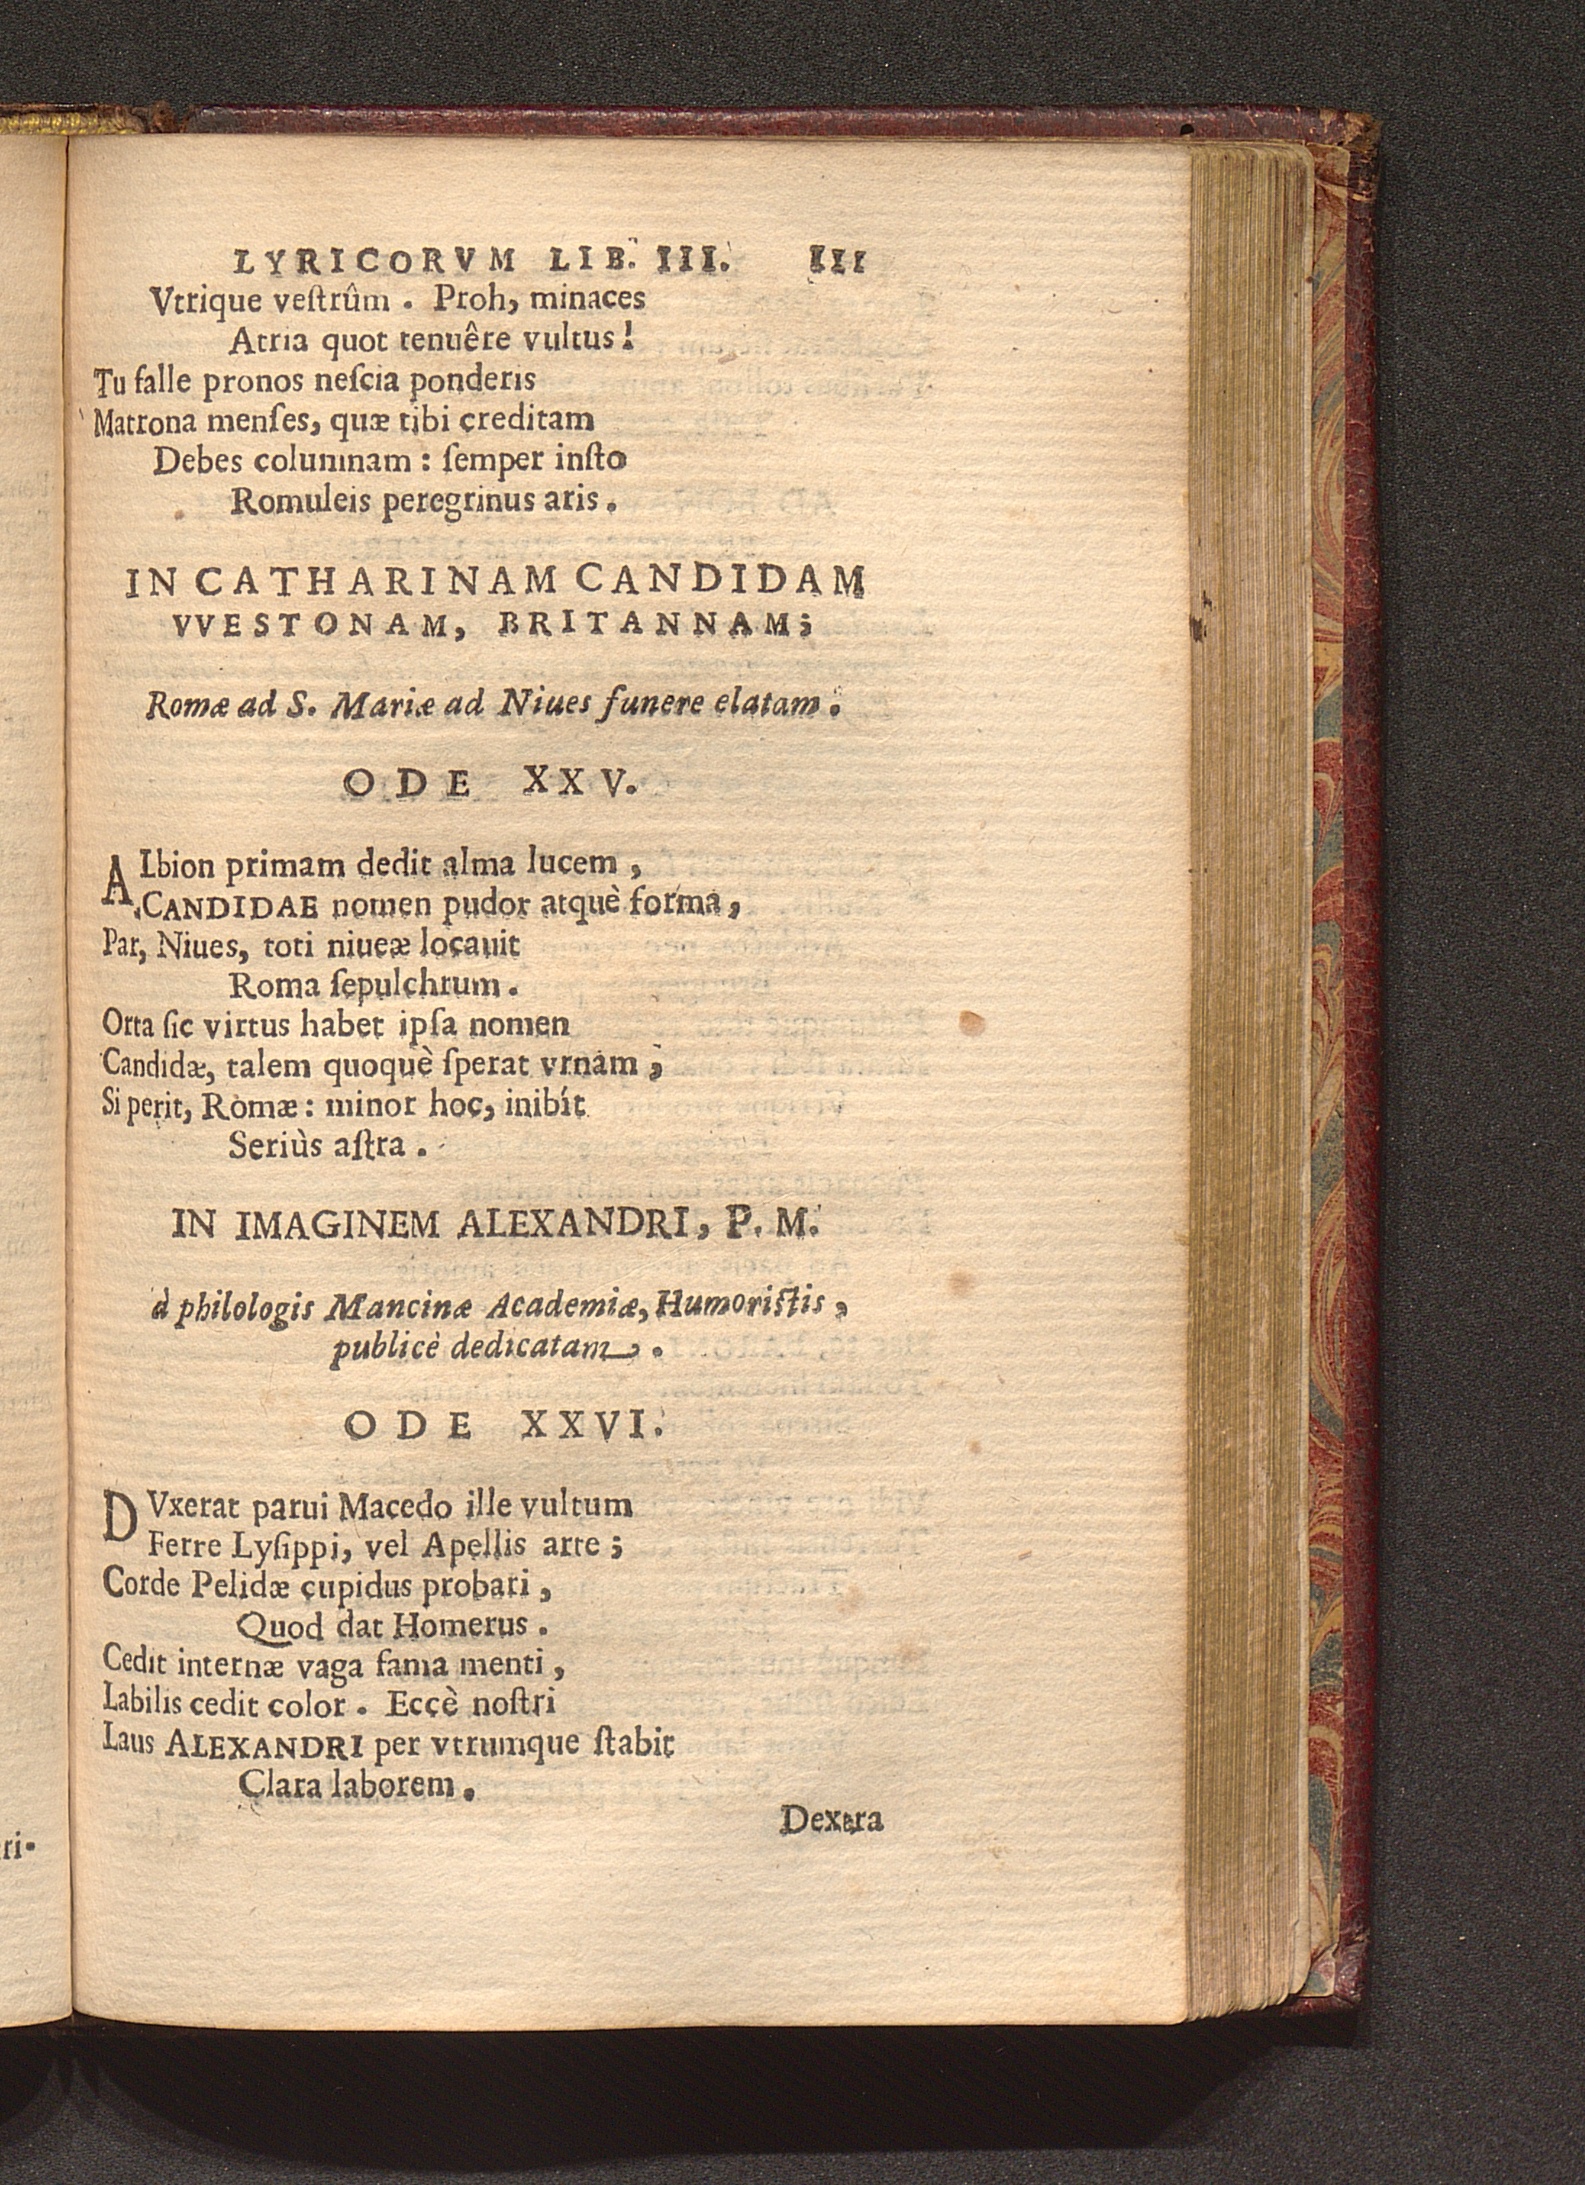 LYRICORVM LIB. III. III
Vtrique veſtrûm. Proh, minaces
Atria quot tenuêre vultus!
Tu falle pronos neſcia ponderis
Matrona menſes, quæ tibi creditam
Debes columnam: ſemper inſto
Romuleis peregrinus aris.
IN CATHARINAM CANDIDAM
VVESTONAM, BRITANNAM;
Romæ ad S. Mariæ ad Niues funere elatam.
ODE XXV.
ALbion primam dedit alma lucem,
CANDIDAE nomen pudor atquè forma,
Par, Niues, toti niueæ locauit
Roma ſepulchrum.
Orta ſic virtus habet ipſa nomen
Candidæ, talem quoquè ſperat vrnam;
Si perit, Romæ: minor hoc, inibít
Seriùs aſtra.
IN IMAGINEM ALEXANDRI, P. M.
à philologis Mancinæ Academiæ, Humoriſtis,
publicè dedicatam.
ODE XXVI.
DVxerat parui Macedo ille vultum
Ferre Lyſippi, vel Apellis arte;
Corde Pelidæ cupidus probari,
Quod dat Homerus.
Cedit internæ vaga fama menti,
Labilis cedit color. Eccè noſtri
Laus ALEXANDRI per vtrumque ſtabit
Clara laborem.
Dextra
ri.